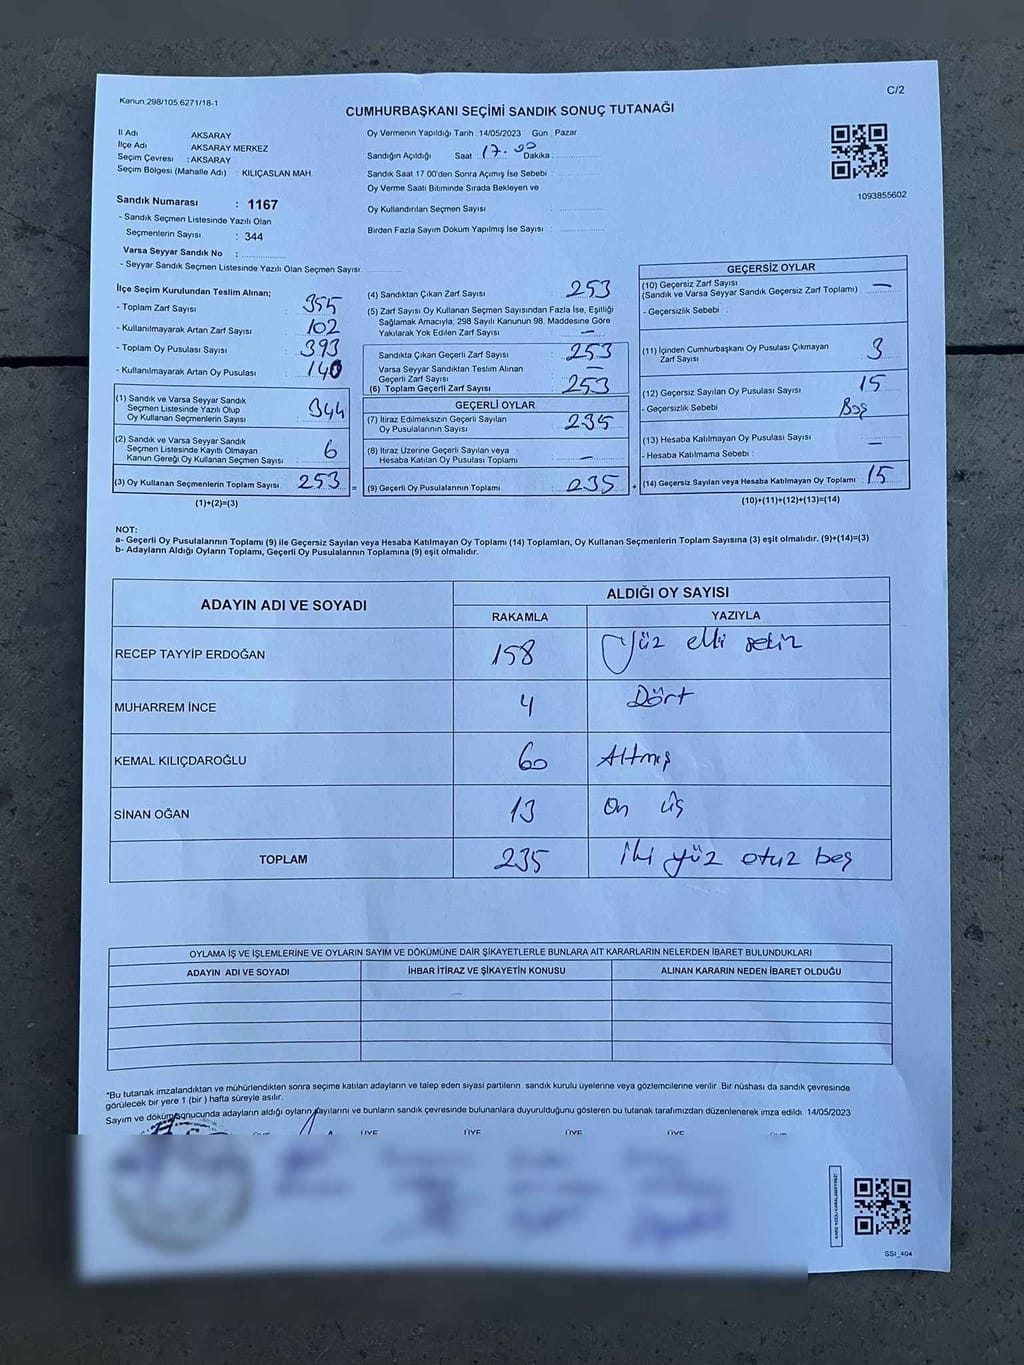 Kanun 298/105,6271/18-1
C/2
CUMHURBAŞKANI SEÇİMİ SANDIK SONUÇ TUTANAĞI
İl Adı AKSARAY
İlçe Adı AKSARAY MERKEZ
Seçim Çevresi : AKSARAY
Seçim Bölgesi (Mahalle Adı) : KILIÇASLAN MAH
Sandık Numarası : 1167
- Sandık Seçmen Listesinde Yazılı Olan
Seçmenlerin Sayısı : 344
Varsa Seyyar Sandık No :
- Seyyar Sandık Seçmen Listesinde Yazılı Olan Seçmen Sayısı
Oy Vermenin Yapıldığı Tarih 14/05/2023 Gün Pazar
Sandığın Açıldığı Saat 17.00 Dakika :
Sandık Saat 17 00'den Sonra Açımış İse Sebebi :
Oy Verme Saati Bitiminde Sırada Bekleyen ve
Oy Kullandırılan Seçmen Sayısı :
Birden Fazla Sayım Döküm Yapılmış İse Sayısı :
1093855602
İlçe Seçim Kurulundan Teslim Alınan;
- Toplam Zarf Sayısı : 355
- Kullanılmayarak Artan Zarf Sayısı : 102
- Toplam Oy Pusulası Sayısı : 393
- Kullanılmayarak Artan Oy Pusulası : 140
(1) Sandık ve Varsa Seyyar Sandık
Seçmen Listesinde Yazılı Olup
Oy Kullanan Seçmenlerin Sayısı : 344
(2) Sandık ve Varsa Seyyar Sandık
Seçmen Listesinde Kayıtlı Olmayan
Kanun Gereği Oy Kullanan Seçmen Sayısı : 6
(3) Oy Kullanan Seçmenlerin Toplam Sayısı : 253 =
(1)+(2)=(3)
(4) Sandıktan Çıkan Zarf Sayısı : 253
(5) Zarf Sayısı Oy Kullanan Seçmen Sayısından Fazla İse, Eşitliği
Sağlamak Amacıyla, 298 Sayılı Kanunun 98. Maddesine Göre
Yakılarak Yok Edilen Zarf Sayısı : —
Sandıkta Çıkan Geçerli Zarf Sayısı : 253
Varsa Seyyar Sandıktan Teslim Alınan
Geçerli Zarf Sayısı : —
(6) Toplam Geçerli Zarf Sayısı : 253
GEÇERLİ OYLAR
(7) İtiraz Edilmeksizin Geçerli Sayılan
Oy Pusulalarının Sayısı : 235
(8) İtiraz Üzerine Geçerli Sayılan veya
Hesaba Katılan Oy Pusulası Toplamı : —
(9) Geçerli Oy Pusulalarının Toplamı : 235 +
GEÇERSİZ OYLAR
(10) Geçersiz Zarf Sayısı
(Sandık ve Varsa Seyyar Sandık Geçersiz Zarf Toplamı) : —
- Geçersizlik Sebebi :
(11) İçinden Cumhurbaşkanı Oy Pusulası Çıkmayan
Zarf Sayısı : 3
(12) Geçersiz Sayılan Oy Pusulası Sayısı : 15
- Geçersizlik Sebebi : Boş
(13) Hesaba Katılmayan Oy Pusulası Sayısı : —
- Hesaba Katılmama Sebebi :
(14) Geçersiz Sayılan veya Hesaba Katılmayan Oy Toplamı : 15
(10)+(11)+(12)+(13)=(14)
NOT:
a- Geçerli Oy Pusulalarının Toplamı (9) ile Geçersiz Sayılan veya Hesaba Katılmayan Oy Toplamı (14) Toplamları, Oy Kullanan Seçmenlerin Toplam Sayısına (3) eşit olmalıdır. (9)+(14)=(3)
b- Adayların Aldığı Oyların Toplamı, Geçerli Oy Pusulalarının Toplamına (9) eşit olmalıdır.
ADAYIN ADI VE SOYADI ALDIĞI OY SAYISI
RAKAMLA YAZIYLA
RECEP TAYYİP ERDOĞAN 158 Yüz elli sekiz
MUHARREM İNCE 4 Dört
KEMAL KILIÇDAROĞLU 60 Altmış
SİNAN OĞAN 13 On üç
TOPLAM 235 iki yüz otuz beş
OYLAMA İŞ VE İŞLEMLERİNE VE OYLARIN SAYIM VE DÖKÜMÜNE DAİR ŞİKAYETLERLE BUNLARA AİT KARARLARIN NELERDEN İBARET BULUNDUKLARI
ADAYIN ADI VE SOYADI İHBAR İTİRAZ VE ŞİKAYETİN KONUSU ALINAN KARARIN NEDEN İBARET OLDUĞU
*Bu tutanak imzalandıktan ve mühürlendikten sonra seçime katılan adayların ve talep eden siyasi partilerin sandık kurulu üyelerine veya gözlemcilerine verilir. Bir nüshası da sandık çevresinde
görülecek bir yere 1 (bir) hafta süreyle asılır.
Sayım ve döküm sonucunda adayların aldığı oyların sayılarını ve bunların sandık çevresinde bulunanlara duyurulduğunu gösteren bu tutanak tarafımızdan düzenlenerek imza edildi 14/05/2023
ÜYE ÜYE ÜYE ÜYE
SSI_404